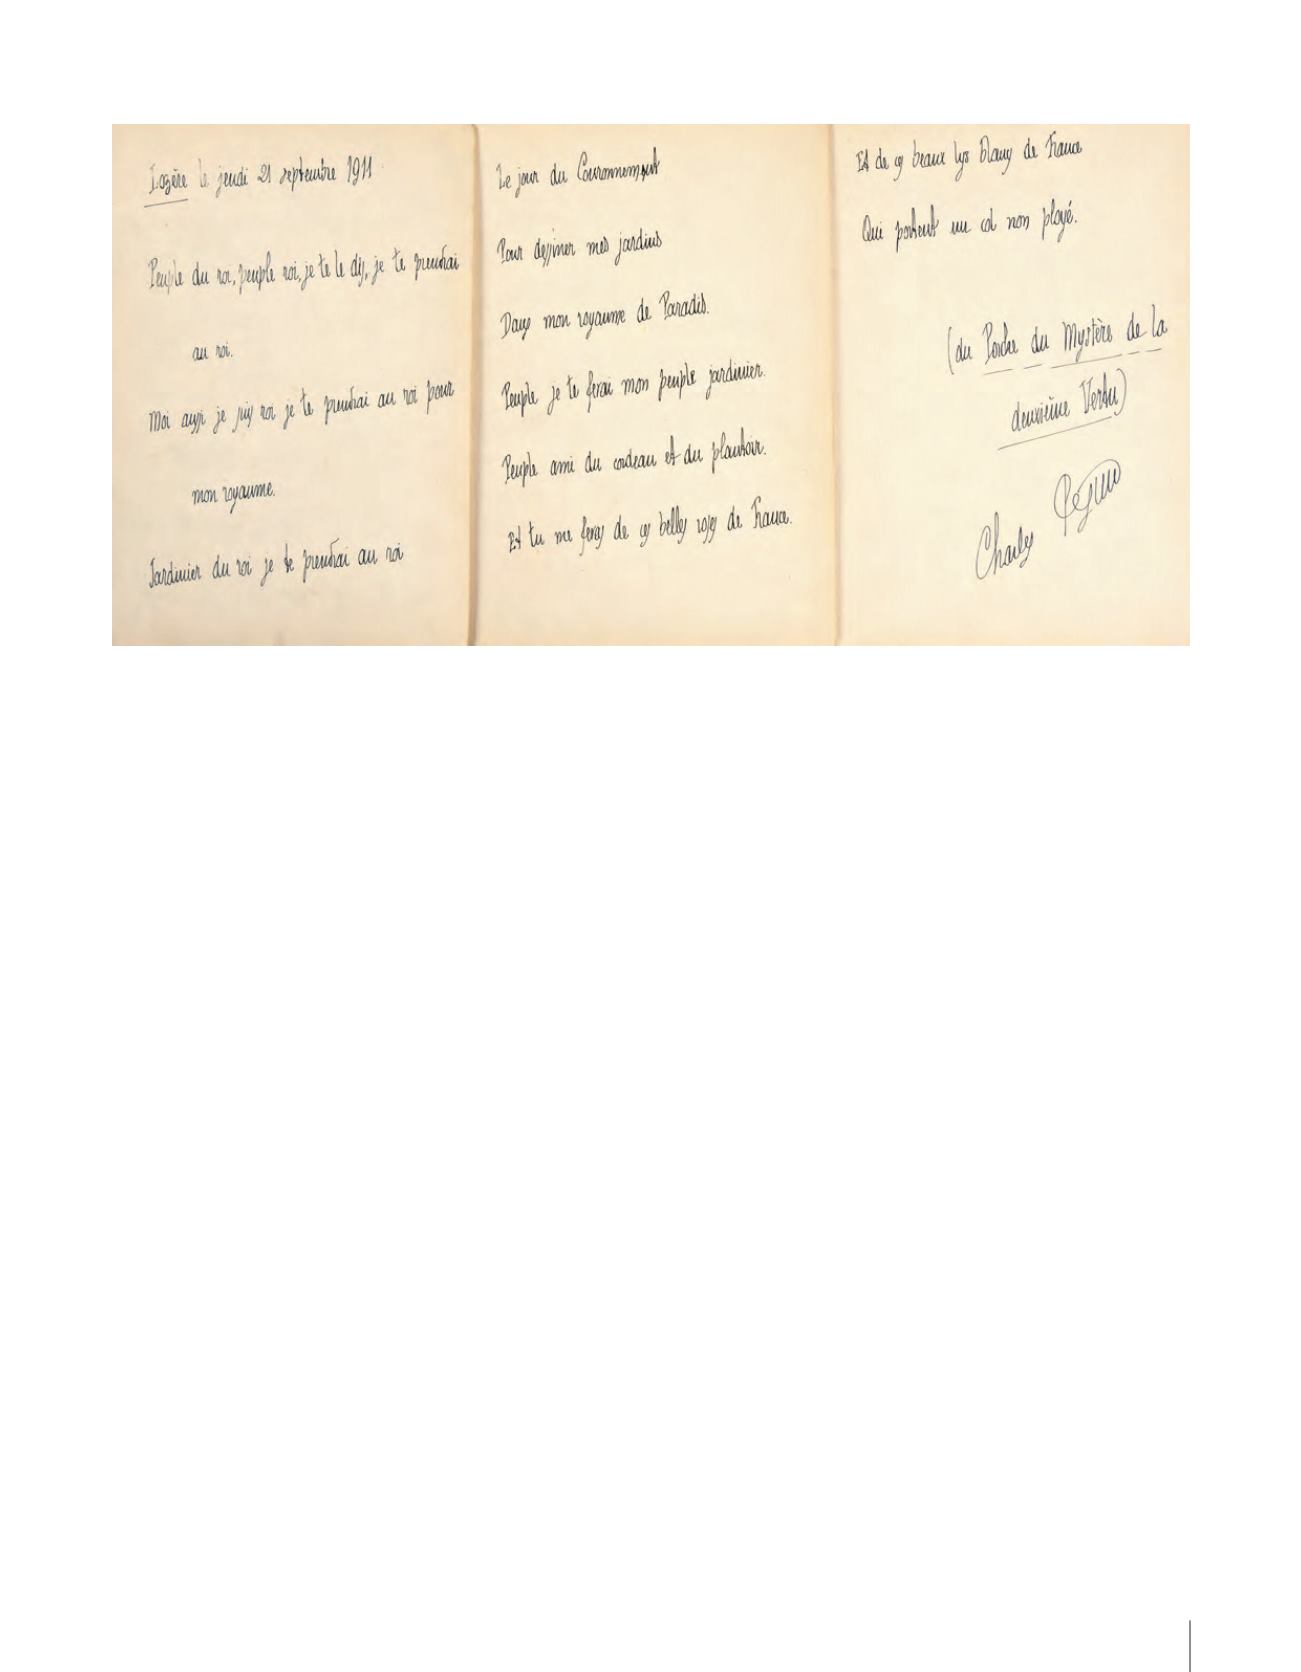 Lozère le jeudi 21 septembre 1911
Peuple du roi, peuple roi, je te le dis, je te prendrai
au roi.
Moi aussi je suis roi je te prendrai au roi pour
mon royaume.
Jardinier du roi je te prendrai au roi
Le jour du Couronnement
Pour dessiner mes jardins
Dans mon royaume de Paradis.
Peuple je te ferai mon peuple jardinier.
Peuple ami du cordeau et du plantoir.
Et tu me feras de ces belles roses de France.
Et de ces beaux lys blancs de France
Qui portent un col non ployé.
(du Porche du Mystère de la
deuxième Vertu)
Charles Péguy